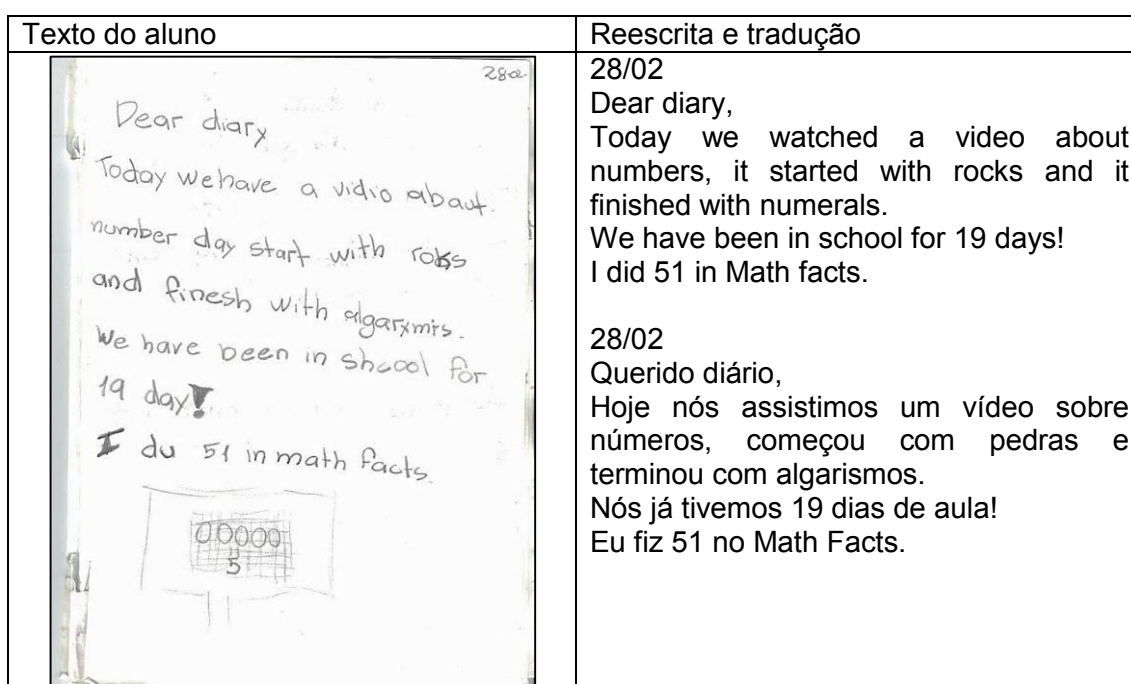 Texto do aluno
28
Dear diary
Today we have a vidio abaut.
number day start with roks
and finesh with
We have been in shcool for
19 day!
I du 51 in math facts.
00000
5
Reescrita e tradução
28/02
Dear diary,
Today we watched a video about
numbers, it started with rocks and it
finished with numerals.
We have been in school for 19 days!
I did 51 in Math facts.
28/02
Querido diário,
Hoje nós assistimos um vídeo sobre
números, começou com pedras e
terminou com algarismos.
Nós já tivemos 19 dias de aula!
Eu fiz 51 no Math Facts.